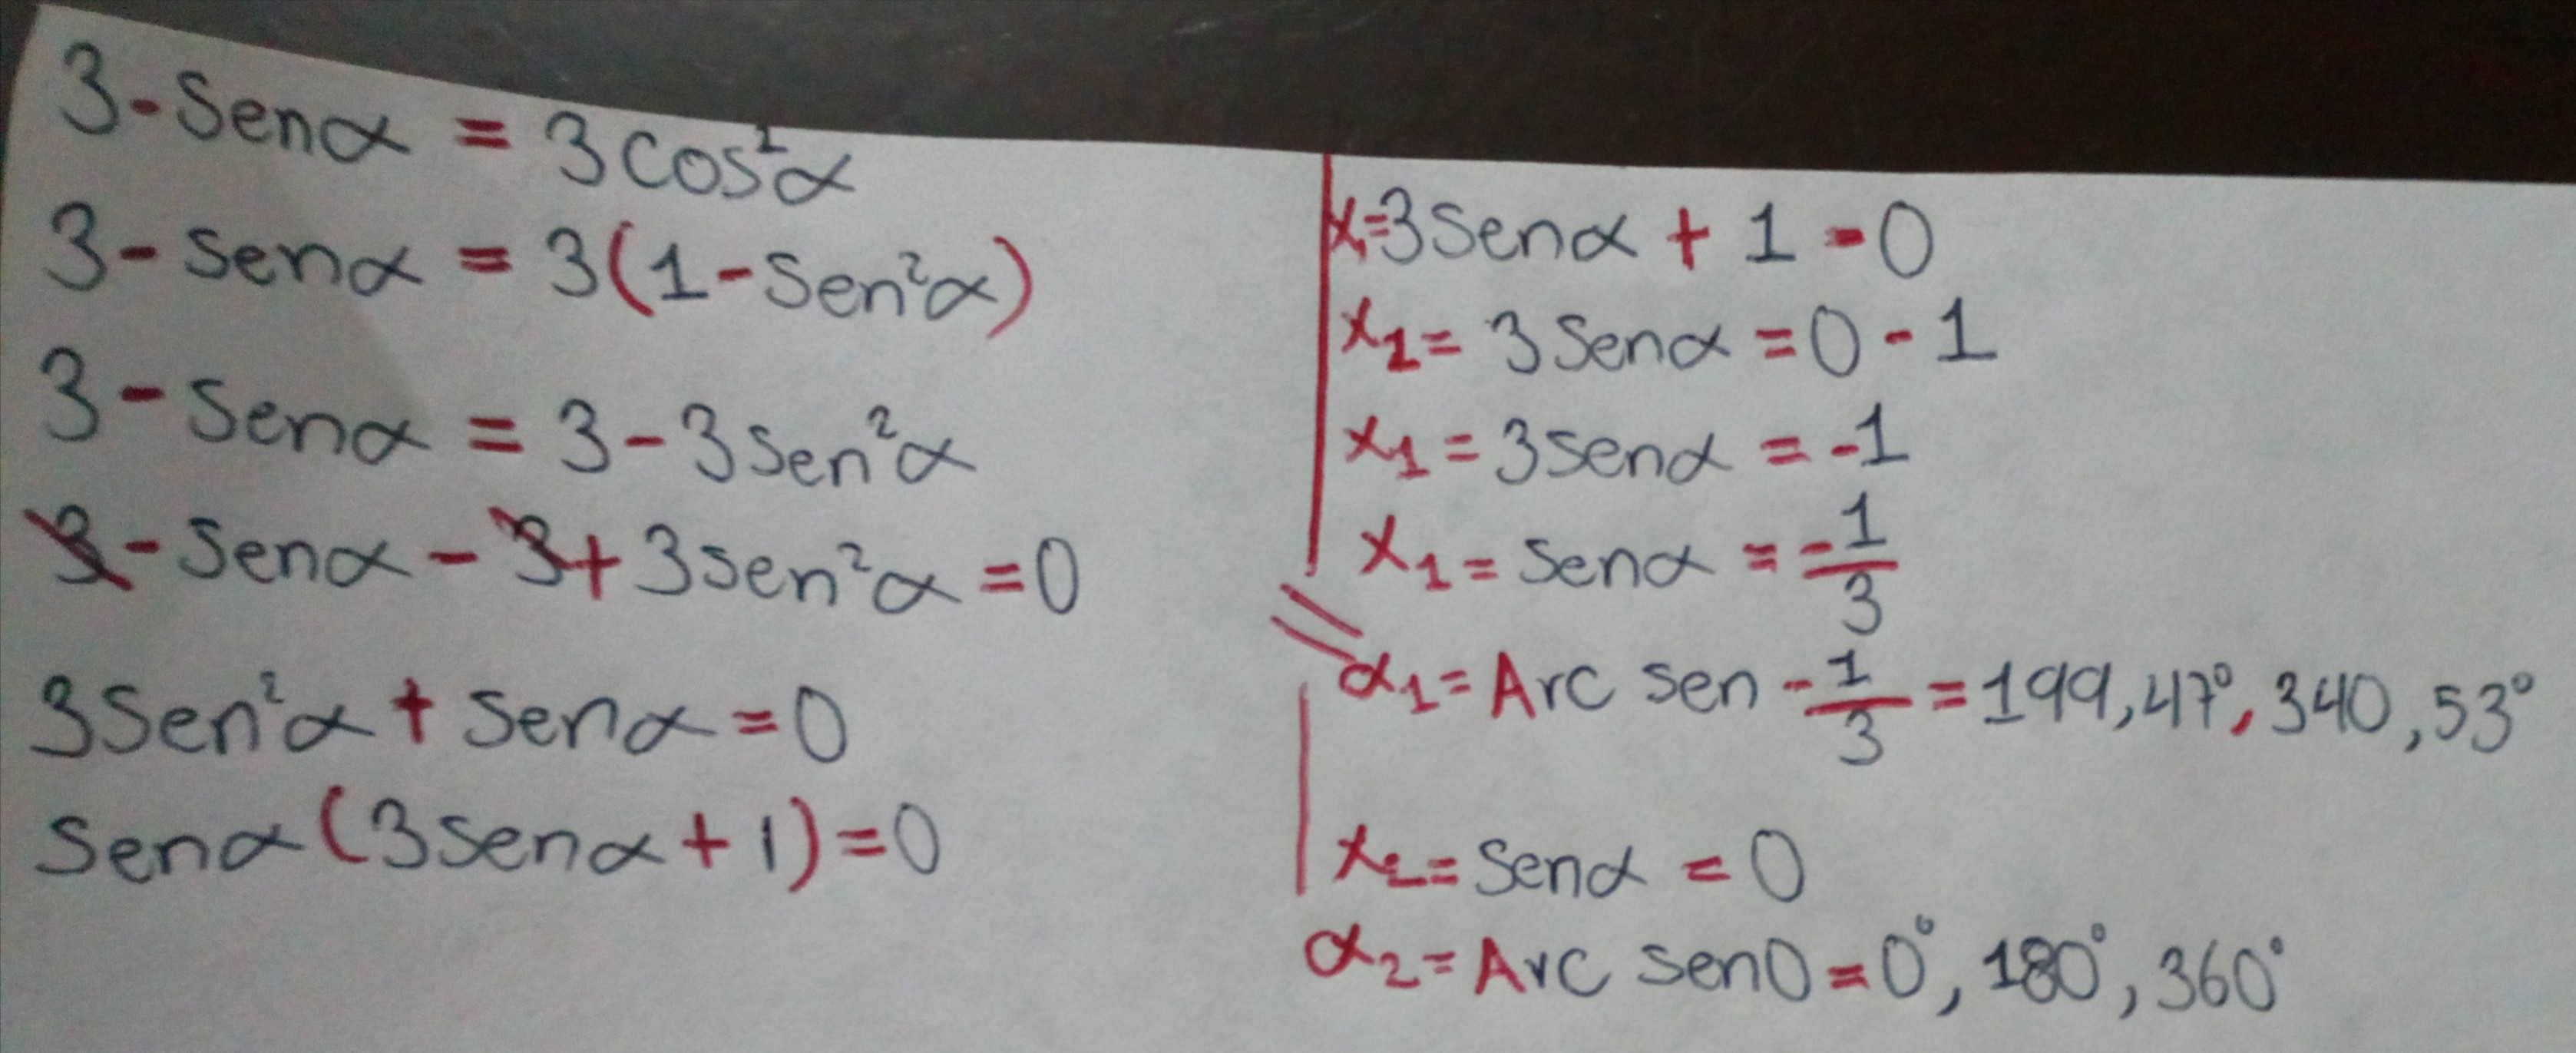 3 - Sen α = 3 cos² α
3 - sen α = 3(1 - Sen² α)
3 - Sen α = 3 - 3 Sen² α
3 - Sen α - 3 + 3 sen² α = 0
3 Sen² α + sen α = 0
sen α (3 sen α + 1) = 0
x₁ = 3 Sen α + 1 = 0
x₁ = 3 Sen α = 0 - 1
x₁ = 3 sen α = -1
x₁ = Sen α = -1/3
α₁ = Arc sen -1/3 = 199,47°, 340,53°
x₂ = Sen α = 0
α₂ = Arc sen 0 = 0°, 180°, 360°